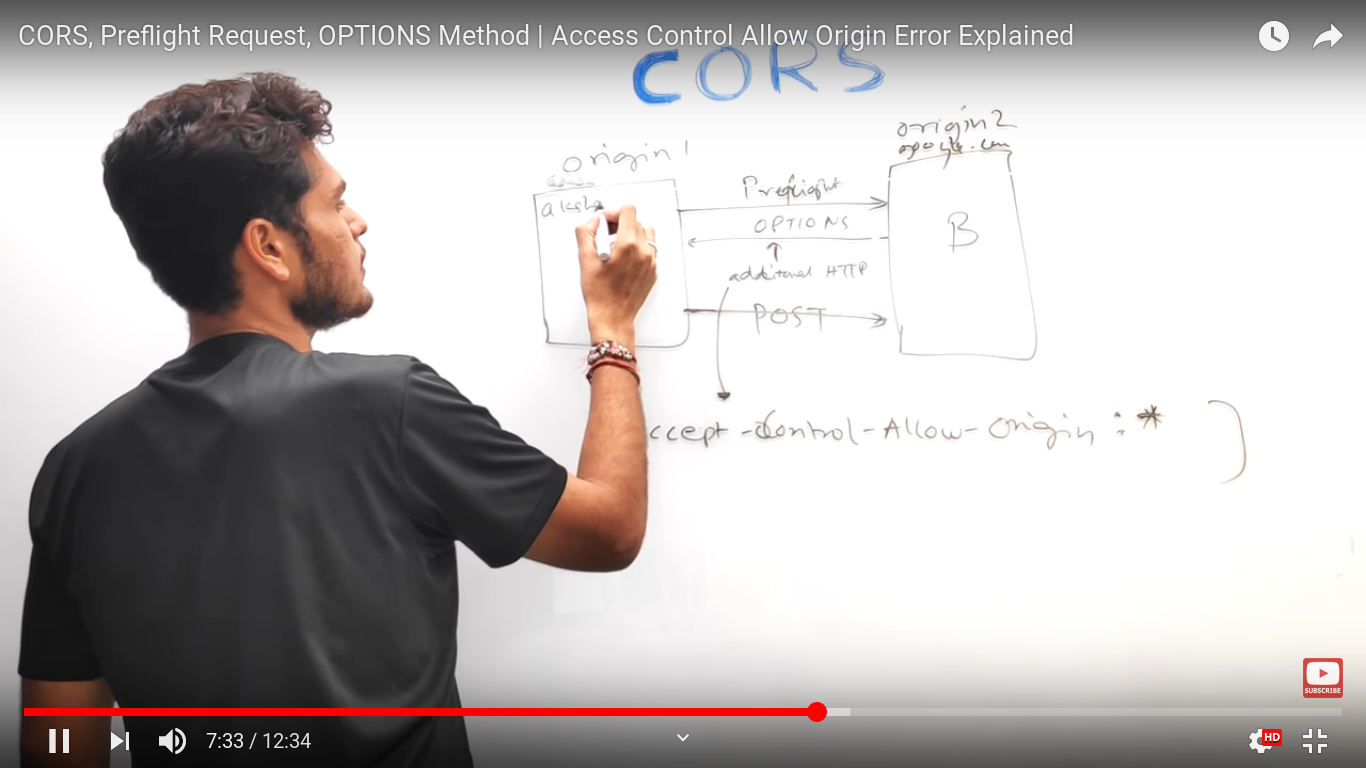 CORS, Preflight Request, OPTIONS Method | Access Control Allow Origin Error Explained
CORS
origin 1
origin 2
google.com
aksha
Preflight
OPTIONS
B
additonal HTTP
POST
ccept-Control-Allow-Origin : *
SUBSCRIBE
7:33 / 12:34
HD